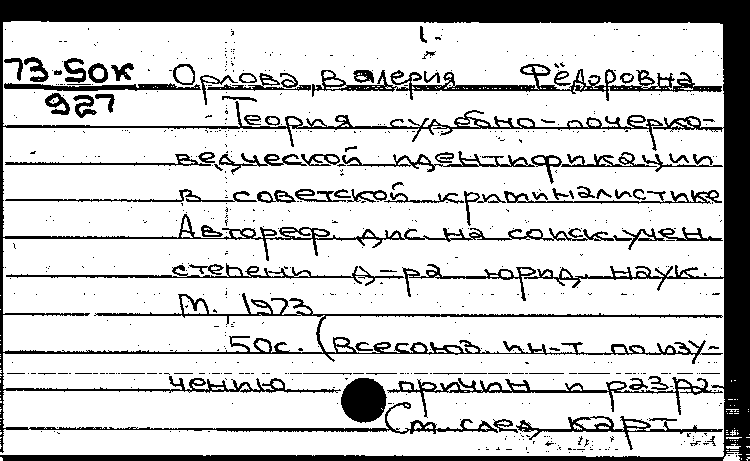 1.
73-50к
927
Орлова, Валерия Фёдоровна
Теория судебно-почерко-
ведческой идентификации
в советской криминалистике
Автореф. дис. на соиск. учен.
степени д-ра юрид. наук.
М., 1973
50с. (Всесоюз. ин-т по изу-
чению причин и разра-
См. след. карт.